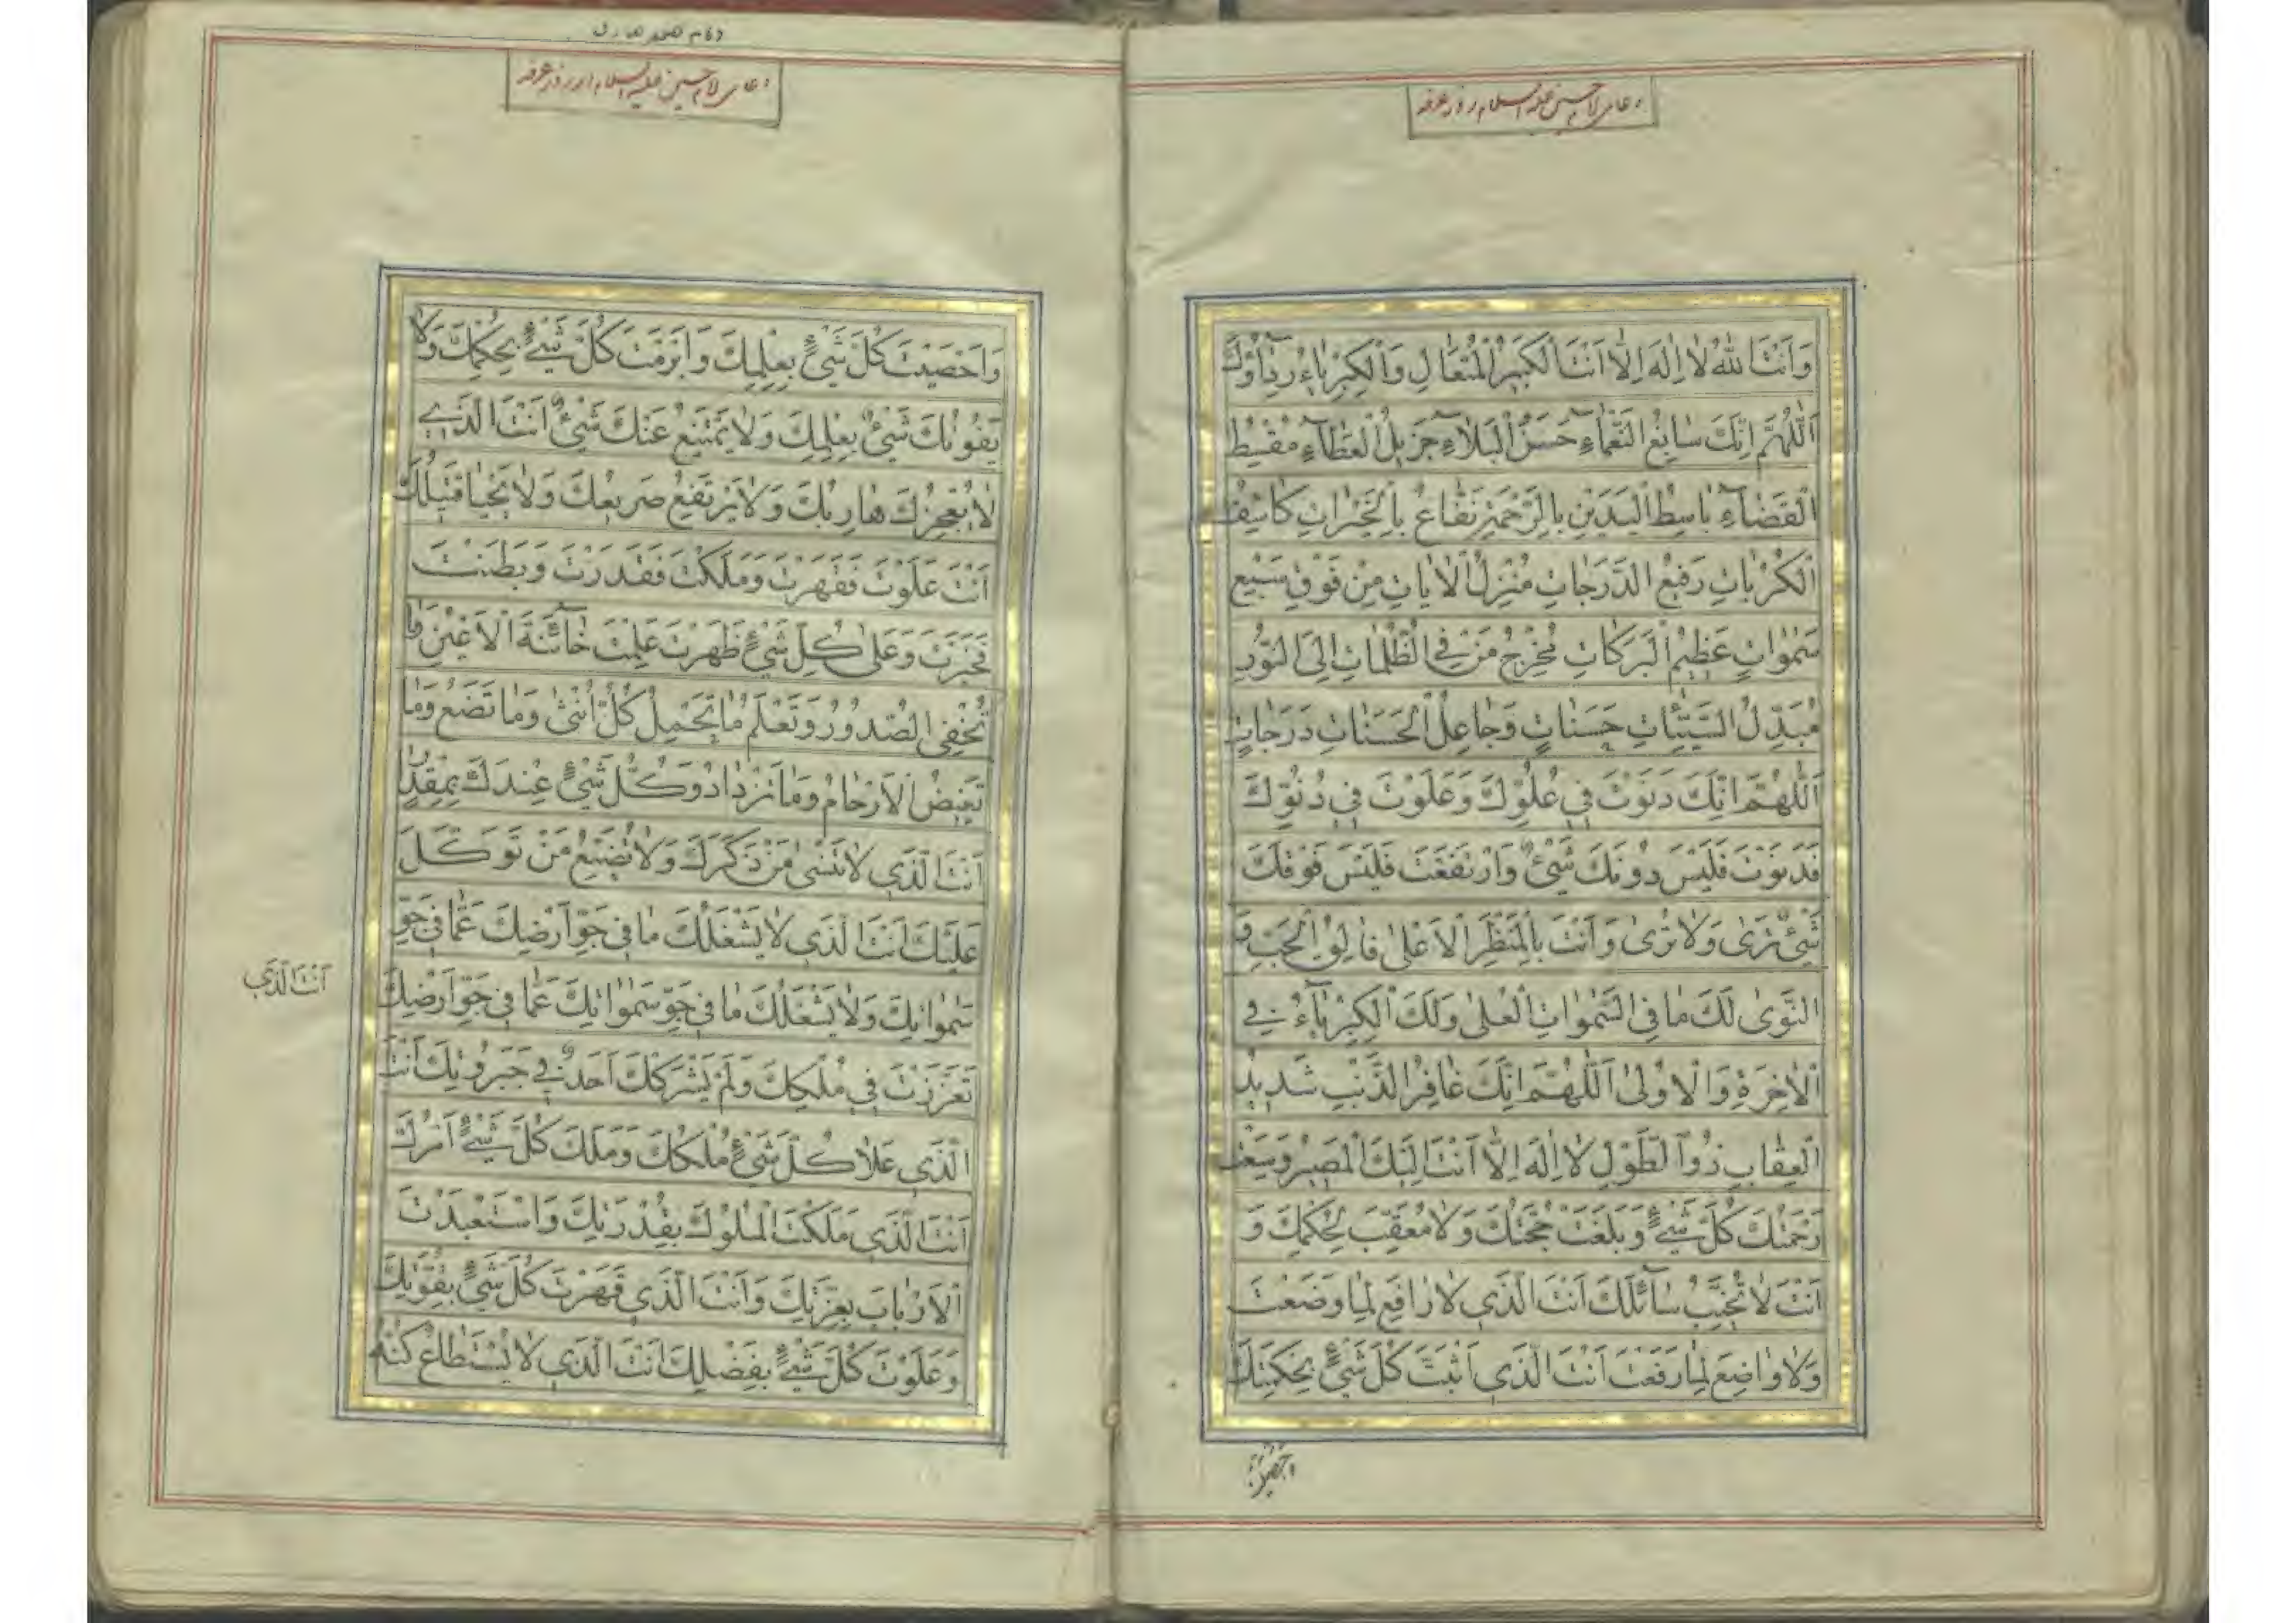 دعای امام حسین علیه السلام روز عرفه
وَاَنْتَ اللّٰهُ لٰا اِلٰهَ اِلّٰا اَنْتَ الْكَبيرُ الْمُتَعٰالِ وَالْكِبْرِيٰاءُ رِدٰاؤُكَ
اَللّٰهُمَّ اِنَّكَ سٰابِغُ النَّعْمٰاءِ حَسَنُ الْبَلٰاءِ جَزيلُ الْعَطٰاءِ مُقْسِطُ
الْقَضٰاءِ بٰاسِطُ الْيَدَيْنِ بِالرَّحْمَةِ نَفّٰاعٌ بِالْخَيْرٰاتِ كٰاشِفُ
الْكُرُبٰاتِ رَفيعُ الدَّرَجٰاتِ مُنْزِلُ الْاٰيٰاتِ مِنْ فَوْقِ سَبْعِ
سَمٰوٰاتٍ عَظيمُ الْبَرَكٰاتِ مُخْرِجُ مَنْ فِي الظُّلُمٰاتِ اِلَى النُّورِ
مُبَدِّلُ السَّيِّئٰاتِ حَسَنٰاتٍ وَجٰاعِلُ الْحَسَنٰاتِ دَرَجٰاتٍ
اَللّٰهُمَّ اِنَّكَ دَنَوْتَ في عُلُوِّكَ وَعَلَوْتَ في دُنُوِّكَ
فَدَنَوْتَ فَلَيْسَ دُونَكَ شَيْءٌ وَارْتَفَعْتَ فَلَيْسَ فَوْقَكَ
شَيْءٌ تَرىٰ وَلٰا تُرىٰ وَاَنْتَ بِالْمَنْظَرِ الْاَعْلىٰ فٰالِقُ الْحَبِّ وَ
النَّوىٰ لَكَ مٰا فِي السَّمٰوٰاتِ الْعُلىٰ وَلَكَ الْكِبْرِيٰاءُ فِي
الْاٰخِرَةِ وَالْاُولىٰ اَللّٰهُمَّ اِنَّكَ غٰافِرُ الذَّنْبِ شَديدُ
الْعِقٰابِ ذُو الطَّوْلِ لٰا اِلٰهَ اِلّٰا اَنْتَ اِلَيْكَ الْمَصيرُ وَسِعَتْ
رَحْمَتُكَ كُلَّ شَيْءٍ وَبَلَغَتْ حُجَّتُكَ وَلٰا مُعَقِّبَ لِحُكْمِكَ وَ
اَنْتَ لٰا تُخَيِّبُ سٰائِلَكَ اَنْتَ الَّذي لٰا رٰافِعَ لِمٰا وَضَعْتَ
وَلٰا وٰاضِعَ لِمٰا رَفَعْتَ اَنْتَ الَّذي اَثْبَتَّ كُلَّ شَيْءٍ بِحِكْمَتِكَ
دعای امام حسین علیه السلام در روز عرفه
وَاَحْصَيْتَ كُلَّ شَيْءٍ بِعِلْمِكَ وَاَبْرَمْتَ كُلَّ شَيْءٍ بِحُكْمِكَ وَلٰا
يَفُوتُكَ شَيْءٌ بِعِلْمِكَ وَلٰا يَمْتَنِعُ عَنْكَ شَيْءٌ اَنْتَ الَّذي
لٰا يُعْجِزُكَ هٰارِبُكَ وَلٰا يَرْتَفِعُ صَريعُكَ وَلٰا يَحْيٰا قَتيلُكَ
اَنْتَ عَلَوْتَ فَقَهَرْتَ وَمَلَكْتَ فَقَدَرْتَ وَبَطَنْتَ
فَخَبَرْتَ وَعَلىٰ كُلِّ شَيْءٍ ظَهَرْتَ عَلِمْتَ خٰائِنَةَ الْاَعْيُنِ وَمٰا
تُخْفِي الصُّدُورُ وَتَعْلَمُ مٰا تَحْمِلُ كُلُّ اُنْثىٰ وَمٰا تَضَعُ وَمٰا
تَغيضُ الْاَرْحٰامُ وَمٰا تَزْدٰادُ وَكُلُّ شَيْءٍ عِنْدَكَ بِمِقْدٰارٍ
اَنْتَ الَّذي لٰا تَنْسىٰ مَنْ ذَكَرَكَ وَلٰا تُضَيِّعُ مَنْ تَوَكَّلَ
عَلَيْكَ اَنْتَ الَّذي لٰا يَشْغَلُكَ مٰا في جَوِّ اَرْضِكَ عَمّٰا في جَوِّ
سَمٰوٰاتِكَ وَلٰا يَشْغَلُكَ مٰا في جَوِّ سَمٰوٰاتِكَ عَمّٰا في جَوِّ اَرْضِكَ
اَنْتَ الَّذي
تَعَزَّزْتَ في مُلْكِكَ وَلَمْ يَشْرَكْكَ اَحَدٌ في جَبَرُوتِكَ اَنْتَ
الَّذي عَلٰا كُلَّ شَيْءٍ مُلْكُكَ وَمَلَكَ كُلَّ شَيْءٍ اَمْرُكَ
اَنْتَ الَّذي مَلَكْتَ الْمُلُوكَ بِقُدْرَتِكَ وَاسْتَعْبَدْتَ
الْاَرْبٰابَ بِعِزَّتِكَ وَاَنْتَ الَّذي قَهَرْتَ كُلَّ شَيْءٍ بِقُوَّتِكَ
وَعَلَوْتَ كُلَّ شَيْءٍ بِفَضْلِكَ اَنْتَ الَّذي لٰا يُسْتَطٰاعُ كُنْهُ